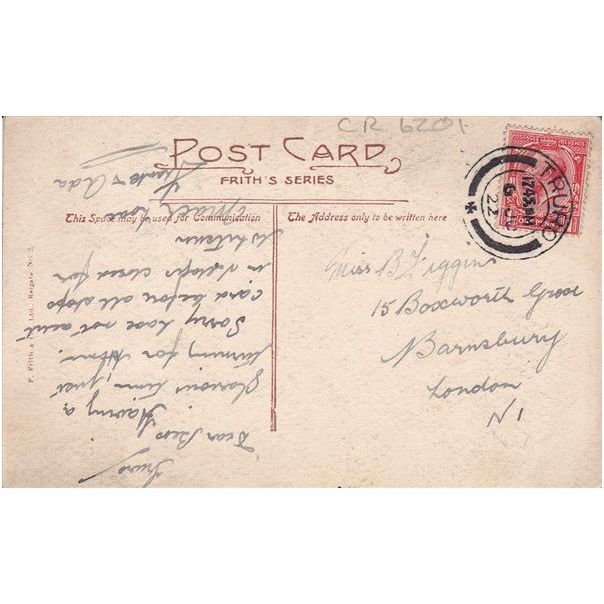 CR 6201
POST CARD
FRITH'S SERIES
This Space may be used for Communication
The Address only to be written here
TRURO
12.45 PM
6 JU
22
Miss B Figgins
15 Boxworth Grove
Barnsbury
London
N1
Truro
Dear Bess
Having a
Glorious time, just
for
Sorry have not sent
card before all shops
in & shops closed for
Whitsun
love
Frank & Ada
F. Frith & Ltd., Reigate. No.